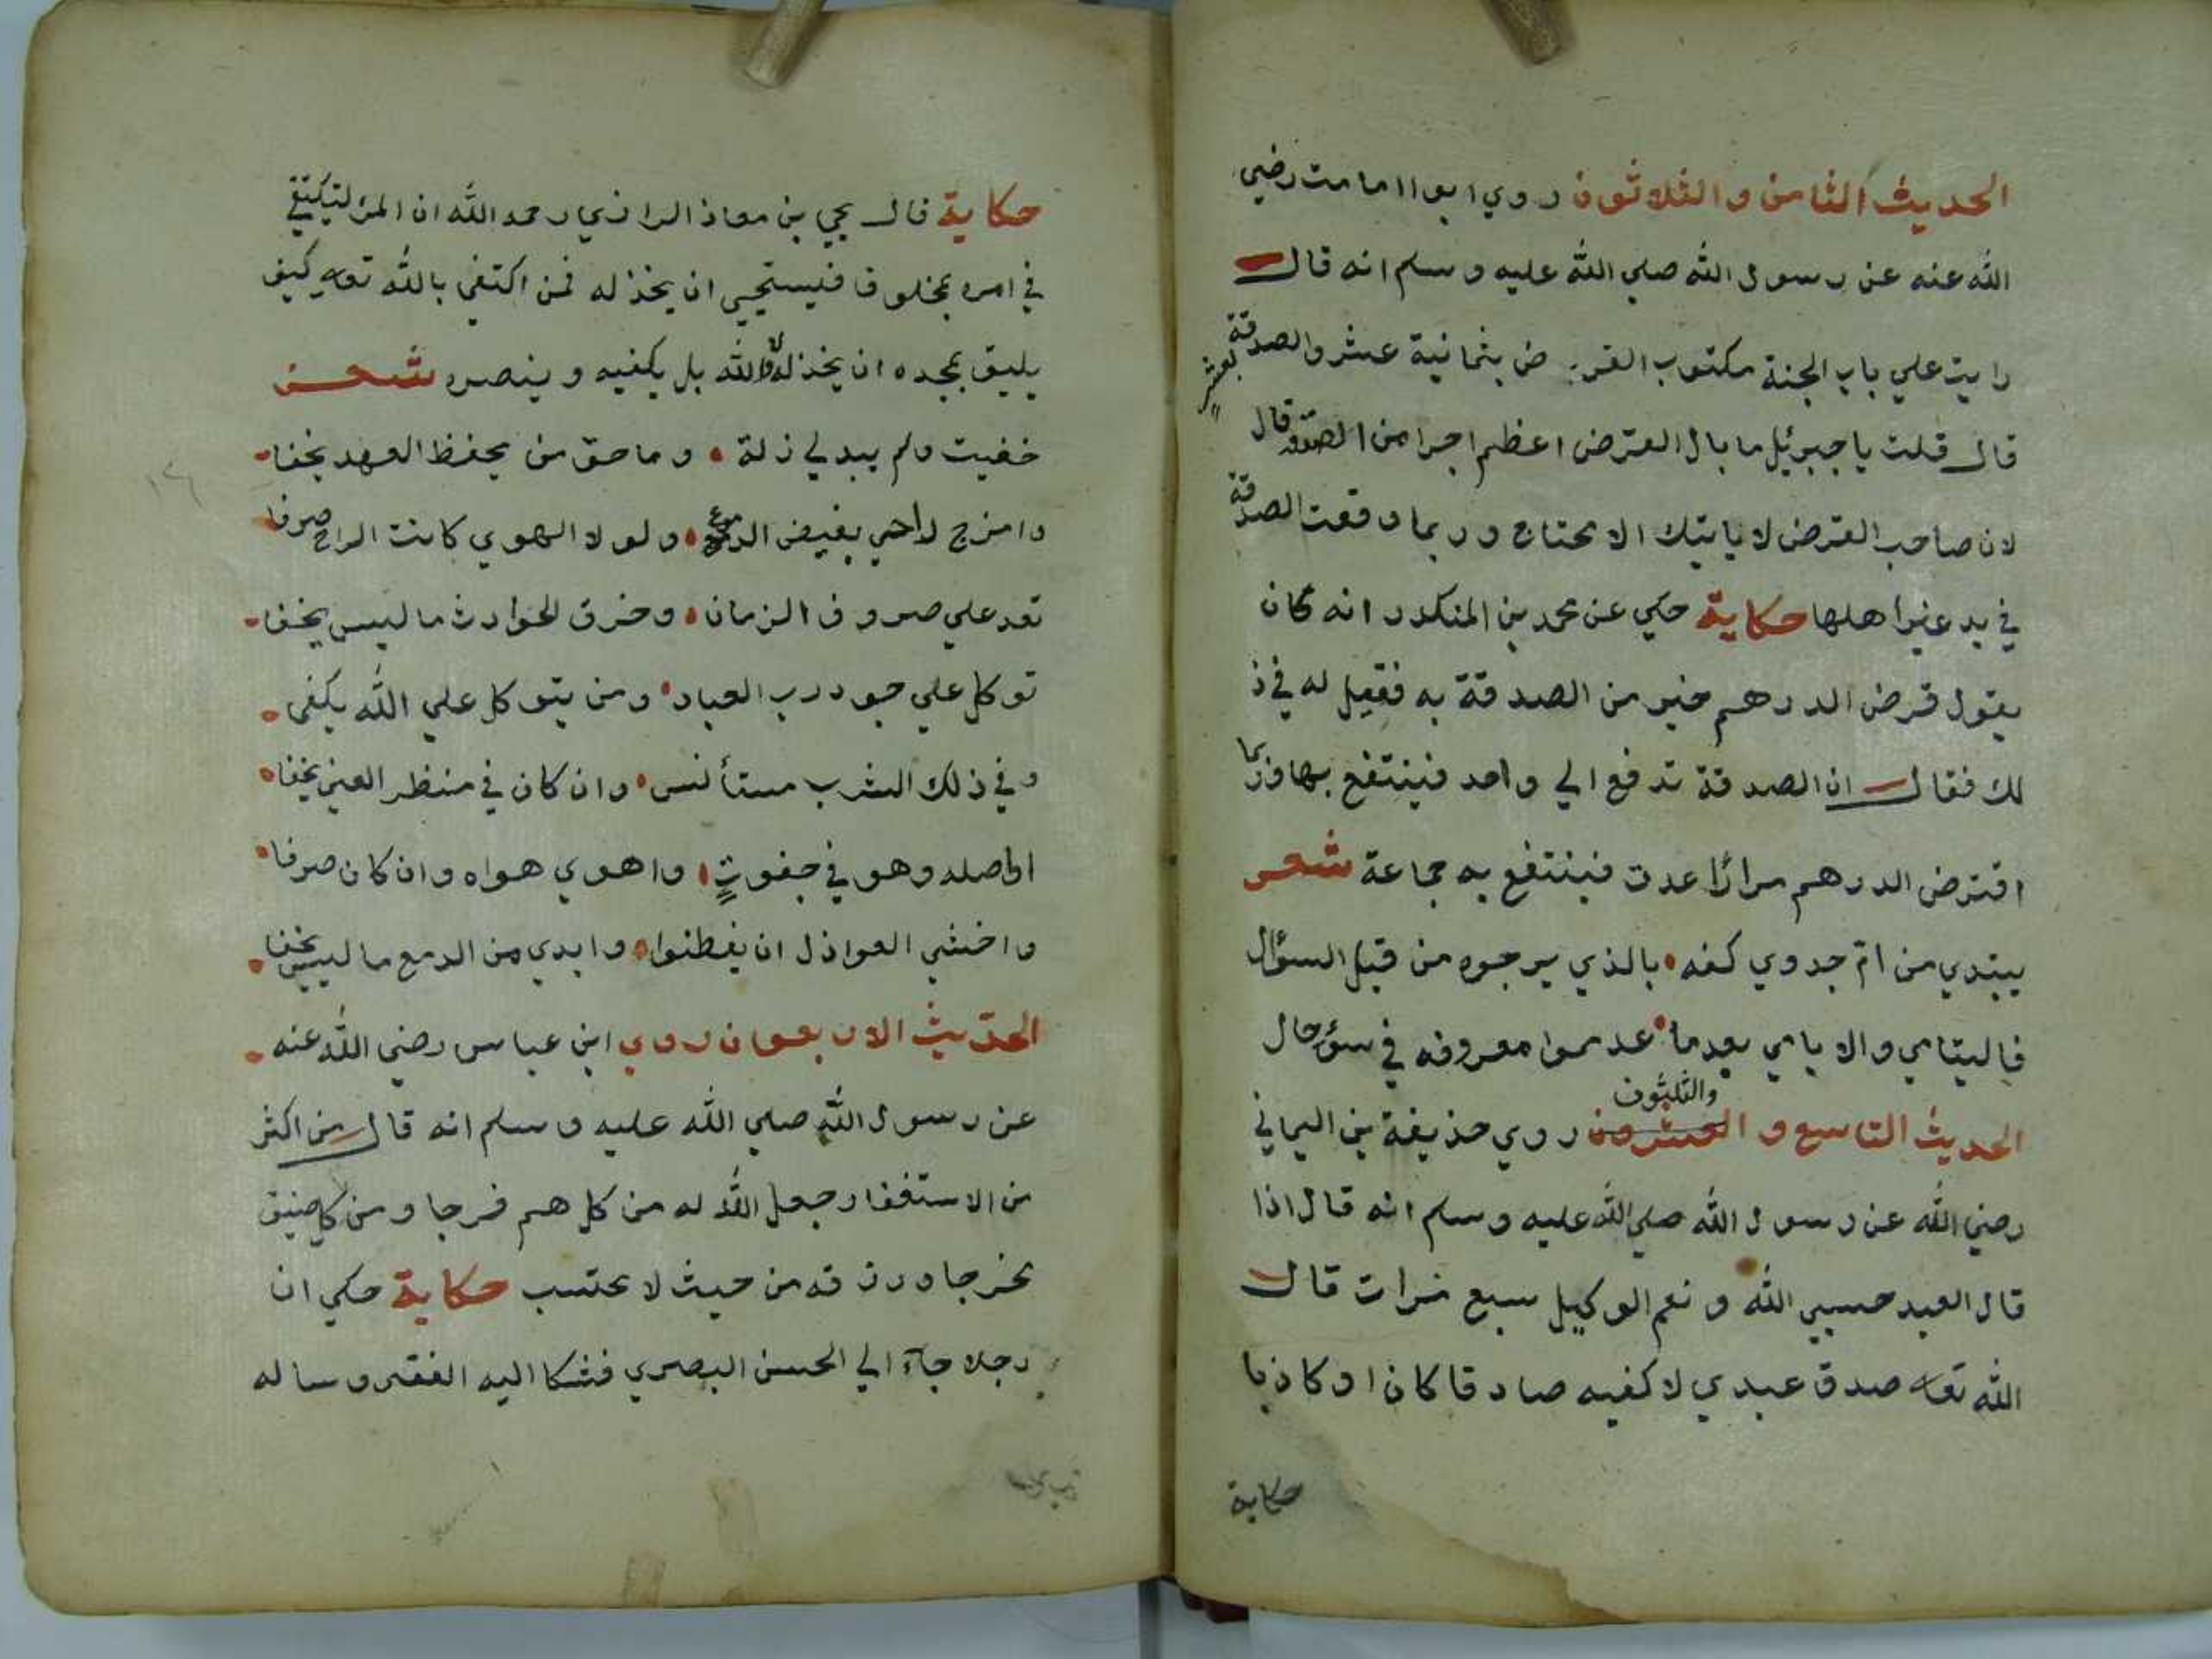 الحديث الثامن والثلاثون روي ابو اامامت رضي
الله عنه عن رسول الله صلي الله عليه وسلم انه قال
رايت علي باب الجنة مكتوب القرض بثمانية عشر والصدقة بعشر
قال قلت يا جبرئيل ما بال القرض اعظم اجرا من الصدقة قال
لان صاحب القرض لا ياتيك الا محتاج وربما وقعت الصدقة
في يد غير اهلها حكاية حكي عن محمد بن المنكدر انه كان
يقول قرض الدرهم خير من الصدقة به فقيل له في ذ
لك فقال ان الصدقة تدفع الي واحد فينتفع بها وربما
اقترض الدرهم مرارًا عدت فينتفع به جماعة شعر
يبتدي من امّ جدوي كفه بالذي يرجوه من قبل السؤال
فاليتامي والايامي بعدما عدموا معروفه في سؤ حال
الحديث التاسع والعشرون والثلثون روي حذيفة بن اليماني
رضي الله عن رسول الله صلي الله عليه وسلم انه قال اذا
قال العبد حسبي الله ونعم الوكيل سبع مرات قال
الله تعا صدق عبدي لاكفيه صادقا كان او كاذبا
حكاية
حكاية قال يحي بن معاذ الرازي رحمه الله ان المرء ليكتفي
في امره بمخلوق فيستحيي ان يخذله فمن اكتفي بالله تعا كيف
يليق بمجده ان يخذله لا والله بل يكفيه وينصره شعر
خفيت ولم يبد لي زلة وما حق من يحفظ العهد يخفا
وامزج راحي بفيض الدموع ولولا الهوي كانت الراح صرفا
تعد علي صروف الزمان وخرق الحوادث ما ليس يخفا
توكل علي جود رب العباد ومن يتوكل علي الله يكفي
وفي ذلك الشرب مستأنس وان كان في منظر العين يخفا
اواصله وهو في جفوتٍ واهوي هواه وان كان صرفا
واخشي العواذل ان يفطنوا وابدي من الدمع ما ليس يخفا
الحديث الاربعوان روي ابن عباس رضي الله عنه
عن رسول الله صلي الله عليه وسلم انه قال من اكثر
من الاستغفار جعل الله له من كل هم فرجا ومن كل ضيق
مخرجا ورزقه من حيث لا يحتسب حكاية حكي ان
رجلا جآء الي الحسن البصري فشكا اليه الفقر وساله